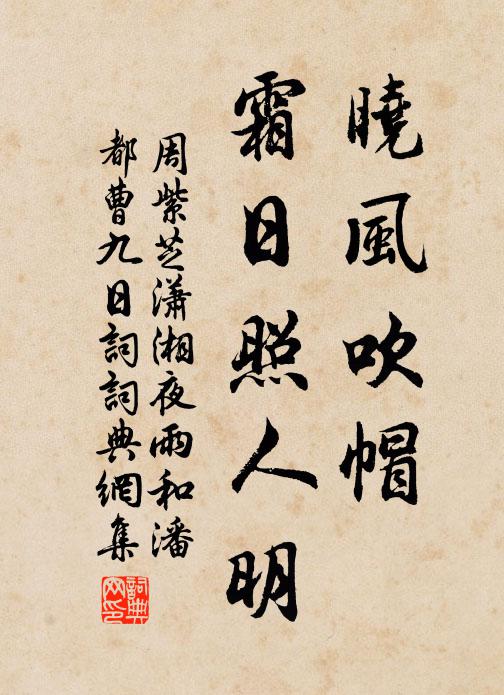 曉風吹帽
霜日照人明
周紫芝瀟湘夜雨和潘
都曹九日詞詞典網集
詞典網印